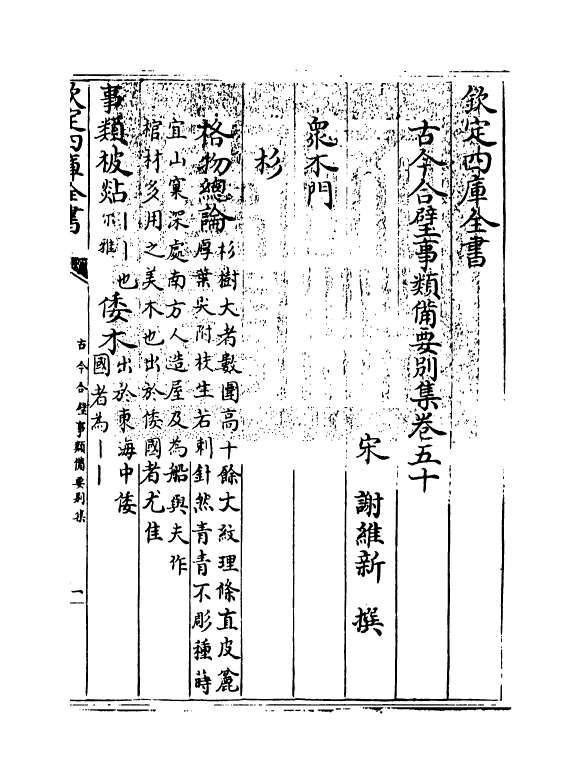 欽定四庫全書
古今合璧事類備要別集卷五十
宋 謝維新 撰
眾木門
杉
格物總論杉樹大者數圍高十餘丈紋理條直皮麄
厚葉尖附枝生若刺針然青青不彫種蒔
宜山窠深處南方人造屋及為船與夫作
棺材多用之美木也出於倭國者尤佳
事類
被㸃爾雅丨丨也
倭木出於東海中倭
國者為丨丨
欽定四庫全書
古今合璧事類備要別集
一